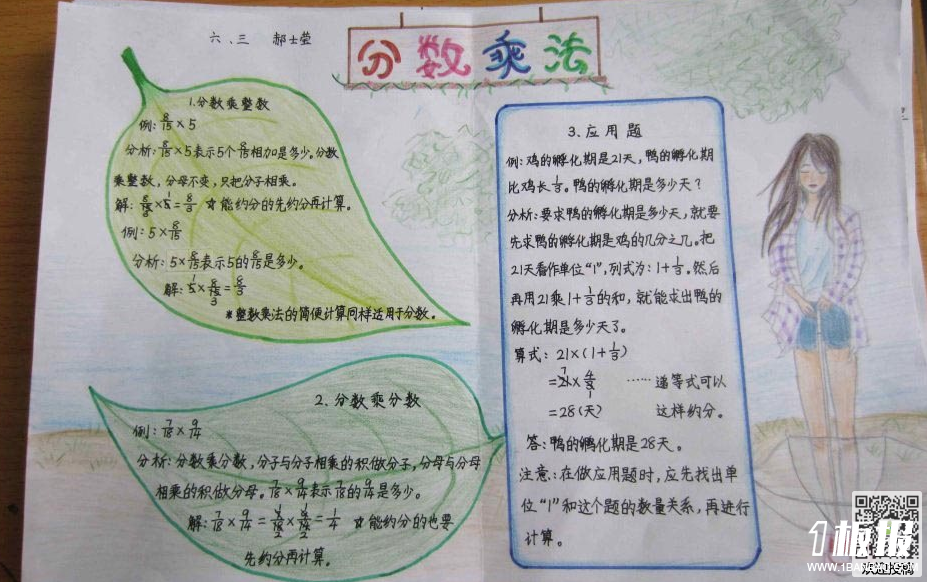 六、三 郝士莹
分数乘法
1.分数乘整数
例:8/15×5
分析:8/15×5表示5个8/15相加是多少。分数
乘整数,分母不变,只把分子相乘。
解:8/15×5=8/3 ☆能约分的先约分再计算。
例:5×8/15
分析:5×8/15表示5的8/15是多少。
解:5×8/15=8/3
*整数乘法的简便计算同样适用于分数。
2.分数乘分数
例:7/18×9/14
分析:分数乘分数,分子与分子相乘的积做分子,分母与分母
相乘的积做分母。7/18×9/14表示7/18的9/14是多少。
解:7/18×9/14=1/2×1/2=1/4 ☆能约分的也要
先约分再计算。
3.应用题
例:鸡的孵化期是21天,鸭的孵化期
比鸡长1/3。鸭的孵化期是多少天?
分析:要求鸭的孵化期是多少天,就要
先求鸭的孵化期是鸡的几分之几。把
21天看作单位“1”,列式为:1+1/3。然后
再用21乘1+1/3的和,就能求出鸭的
孵化期是多少天了。
算式:21×(1+1/3)
=21×4/3 ……递等式可以
=28(天) 这样约分。
答:鸭的孵化期是28天。
注意:在做应用题时,应先找出单
位“1”和这个题的数量关系,再进行
计算。
1板报
WWW.1BANBAO.COM
欢迎投稿